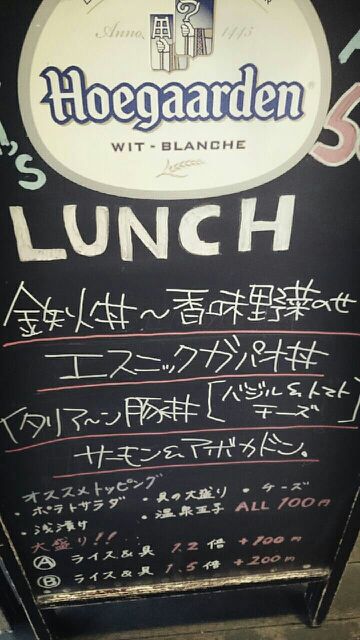 Anno 1445
Hoegaarden
WIT - BLANCHE
LUNCH
鉄火丼〜香味野菜のせ
エスニックガパオ丼
イタリア〜ン豚丼 [バジル&トマト
チーズ]
サーモン&アボカドン。
オススメトッピング
・ポテトサラダ ・具の大盛り ・チーズ
・浅漬け ・温泉玉子 ALL 100円
大盛り!!
Ⓐ ライス&具 1.2 倍 +100円
Ⓑ ライス&具 1.5 倍 +200円